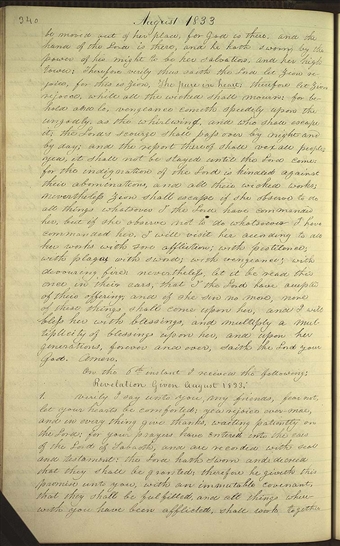 240 August 1833
be moved out of her place, for God is there, and the
hand of the Lord is there, and he hath sworn by the
power of his might to be her salvation, and her high
tower; Therefore verily thus saith the Lord let Zion re-
joice, for this is Zion, The pure in heart; therefore let Zion
rejoice, while all the wicked shall mourn: for be-
hold and lo, vengeance cometh speedily upon the
ungodly, as the whirlwind, and who shall escape
it; the Lord's scourge shall pass over by night and
by day; and the report thereof shall vex all people;
yea, it shall not be stayed until the Lord come:
for the indignation of the Lord is kindled against
their abominations, and all their wicked works;
nevertheless Zion shall escape if she observe to do
all things whatsoever I the Lord have commanded
her, but if she observe not to do whatsoever I have
commanded her, I will visit her according to all
her works with sore affliction; with pestilence;
with plague with sword; with vengeance; with
devouring fire: nevertheless, let it be read this
once in their ears, that I the Lord have accepted
of their offering; and if she sin no more, none
of these things shall come upon her, and I will
bless her with blessings, and multiply a mul
tiplicity of blessings upon her, and upon her
generations, forever and ever, saith the Lord your
God. Amen.
On the 6th instant I received the following:
Revelation Given August 1833.
1. Verily I say unto you, my friends, fear not,
let your hearts be comforted; yea rejoice ever more,
and in every thing give thanks, waiting patiently on
the Lord; for your prayers have entered into the ears
of the Lord of Sabaoth, and are recorded with this seal
and testament: the Lord hath sworn and decreed
that they shall be granted; therefore he giveth this
promise unto you, with an immutable covenant,
that they shall be fulfilled, and all things where
with you have been afflicted, shall work together